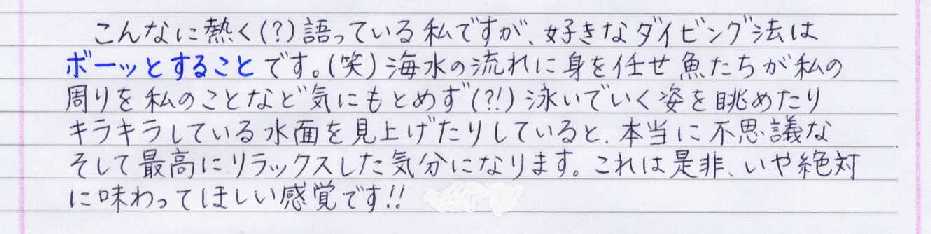 こんなに熱く(?)語っている私ですが、好きなダイビング法は
ボーッとすることです。(笑)海水の流れに身を任せ魚たちが私の
周りを私のことなど気にもとめず(?!)泳いでいく姿を眺めたり
キラキラしている水面を見上げたりしていると、本当に不思議な
そして最高にリラックスした気分になります。これは是非、いや絶対
に味わってほしい感覚です!!